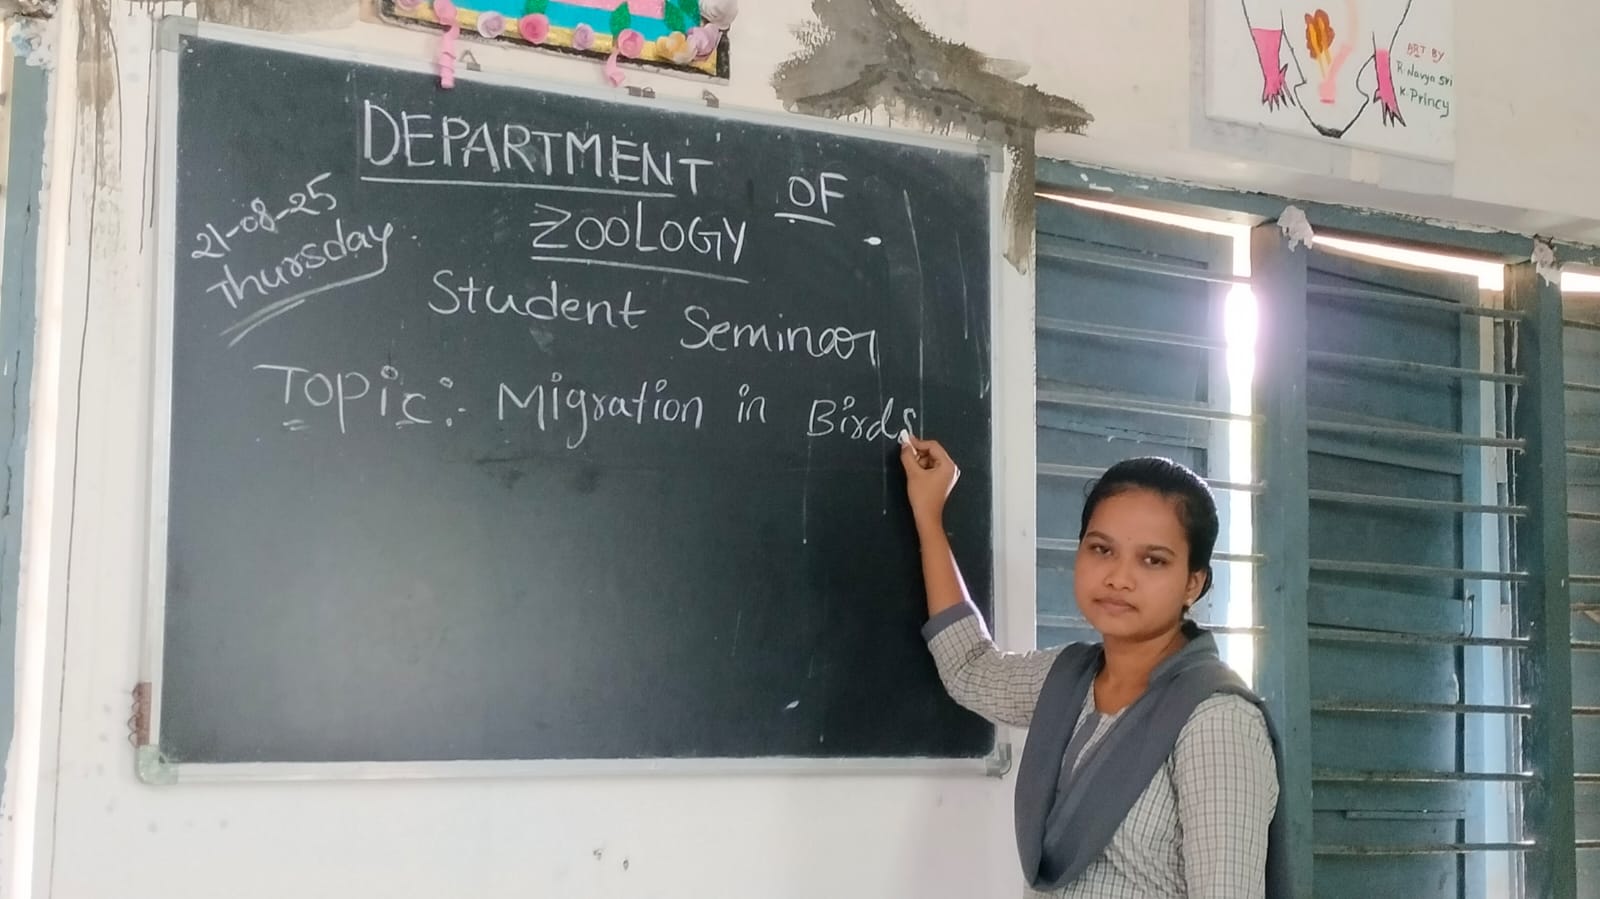 DEPARTMENT OF
ZOOLOGY
21-08-25
Thursday
Student Seminar
Topic:- Migration in Birds
ART BY
R. Navya Sri
K. Princy